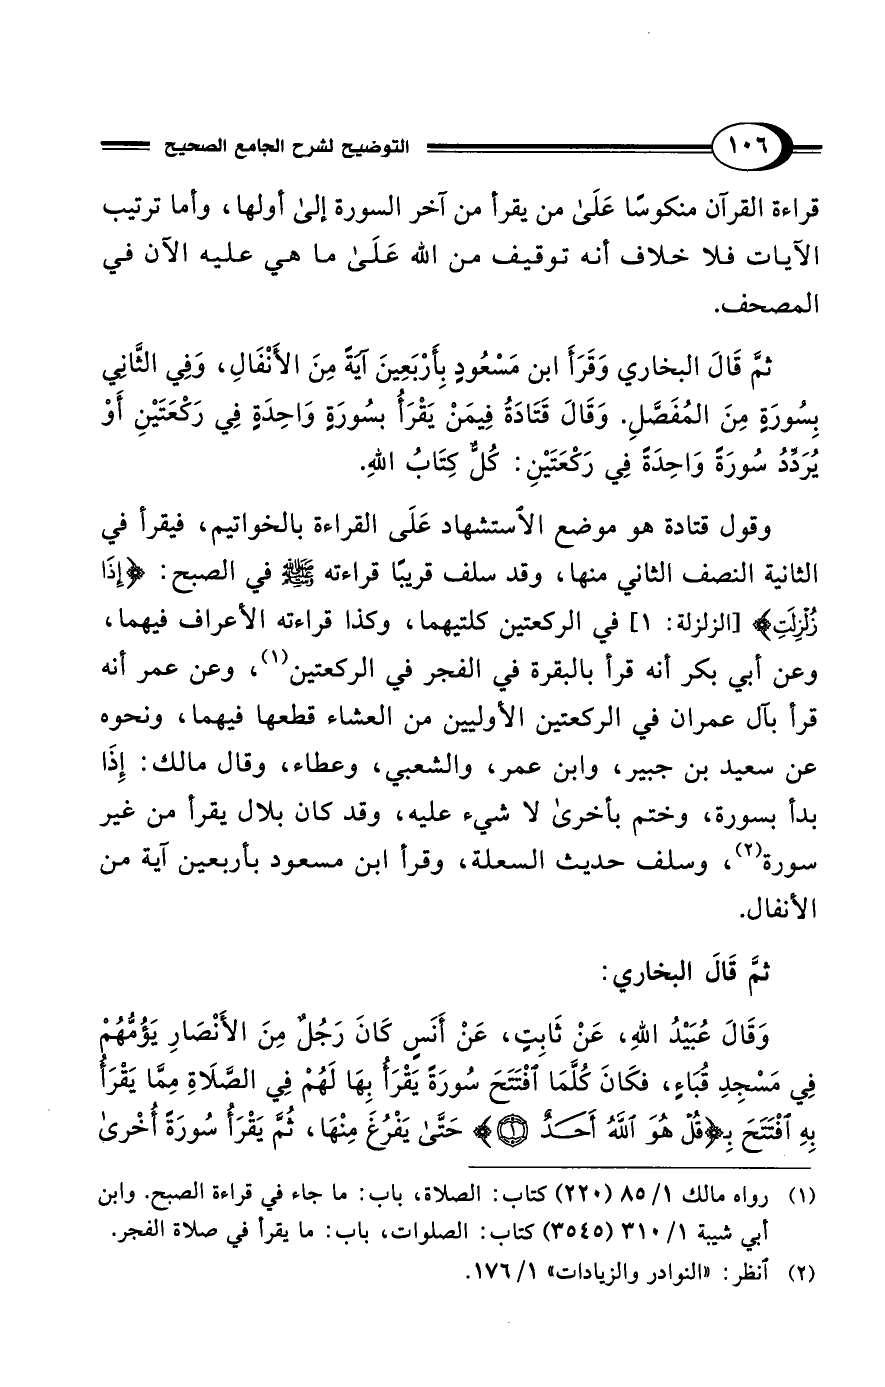 ١٠٦ التوضيح لشرح الجامع الصحيح
قراءة القرآن منكوسًا عَلَىٰ من يقرأ من آخر السورة إلىٰ أولها، وأما ترتيب
الآيات فلا خلاف أنه توقيف من الله عَلَىٰ ما هي عليه الآن في
المصحف.
ثمَّ قَالَ البخاري وَقَرَأَ ابن مَسْعُودٍ بِأَرْبَعِينَ آيَةً مِنَ الأَنْفَالِ، وَفِي الثَّانِي
بِسُورَةٍ مِنَ المُفَصَّلِ. وَقَالَ قَتَادَةُ فِيمَنْ يَقْرَأُ بسُورَةٍ وَاحِدَةٍ فِي رَكْعَتَيْنِ أَوْ
يُرَدِّدُ سُورَةً وَاحِدَةً فِي رَكْعَتَيْنِ: كُلٌّ كِتَابُ اللهِ.
وقول قتادة هو موضع الاٌستشهاد عَلَى القراءة بالخواتيم، فيقرأ في
الثانية النصف الثاني منها، وقد سلف قريبًا قراءته ﷺ في الصبح: ﴿إِذَا
زُلْزِلَتِ﴾ [الزلزلة: ١] في الركعتين كلتيهما، وكذا قراءته الأعراف فيهما،
وعن أبي بكر أنه قرأ بالبقرة في الفجر في الركعتين(١)، وعن عمر أنه
قرأ بآل عمران في الركعتين الأوليين من العشاء قطعها فيهما، ونحوه
عن سعيد بن جبير، وابن عمر، والشعبي، وعطاء، وقال مالك: إِذَا
بدأ بسورة، وختم بأخرىٰ لا شيء عليه، وقد كان بلال يقرأ من غير
سورة(٢)، وسلف حديث السعلة، وقرأ ابن مسعود بأربعين آية من
الأنفال.
ثمَّ قَالَ البخاري:
وَقَالَ عُبَيْدُ اللهِ، عَنْ ثَابِتٍ، عَنْ أَنَسٍ كَانَ رَجُلٌ مِنَ الأَنْصَارِ يَؤُمُّهُمْ
فِي مَسْجِدِ قُبَاءٍ، فكَانَ كُلَّمَا ٱفْتَتَحَ سُورَةً يَقْرَأُ بِهَا لَهُمْ فِي الصَّلَاةِ مِمَّا يَقْرَأُ
بِهِ ٱفْتَتَحَ بِـ﴿قُلْ هُوَ اللَّهُ أَحَدٌ ١﴾ حَتَّىٰ يَفْرُغَ مِنْهَا، ثُمَّ يَقْرَأُ سُورَةً أُخْرىٰ
(١) رواه مالك ١/ ٨٥ (٢٢٠) كتاب: الصلاة، باب: ما جاء في قراءة الصبح. وابن
أبي شيبة ١/ ٣١٠ (٣٥٤٥) كتاب: الصلوات، باب: ما يقرأ في صلاة الفجر.
(٢) ٱنظر: «النوادر والزيادات» ١/ ١٧٦.